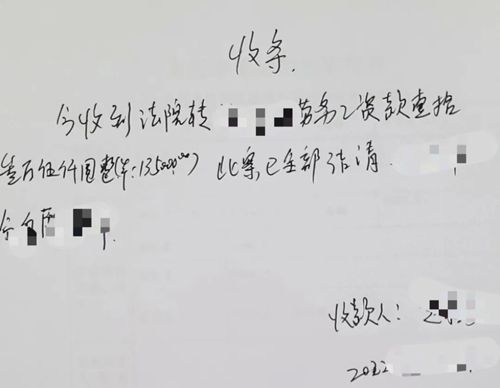 收条
今收到法院转 劳务工资款壹拾
叁万伍仟圆整(¥:135000.00) 此案已全部结清.
收款人:
2022